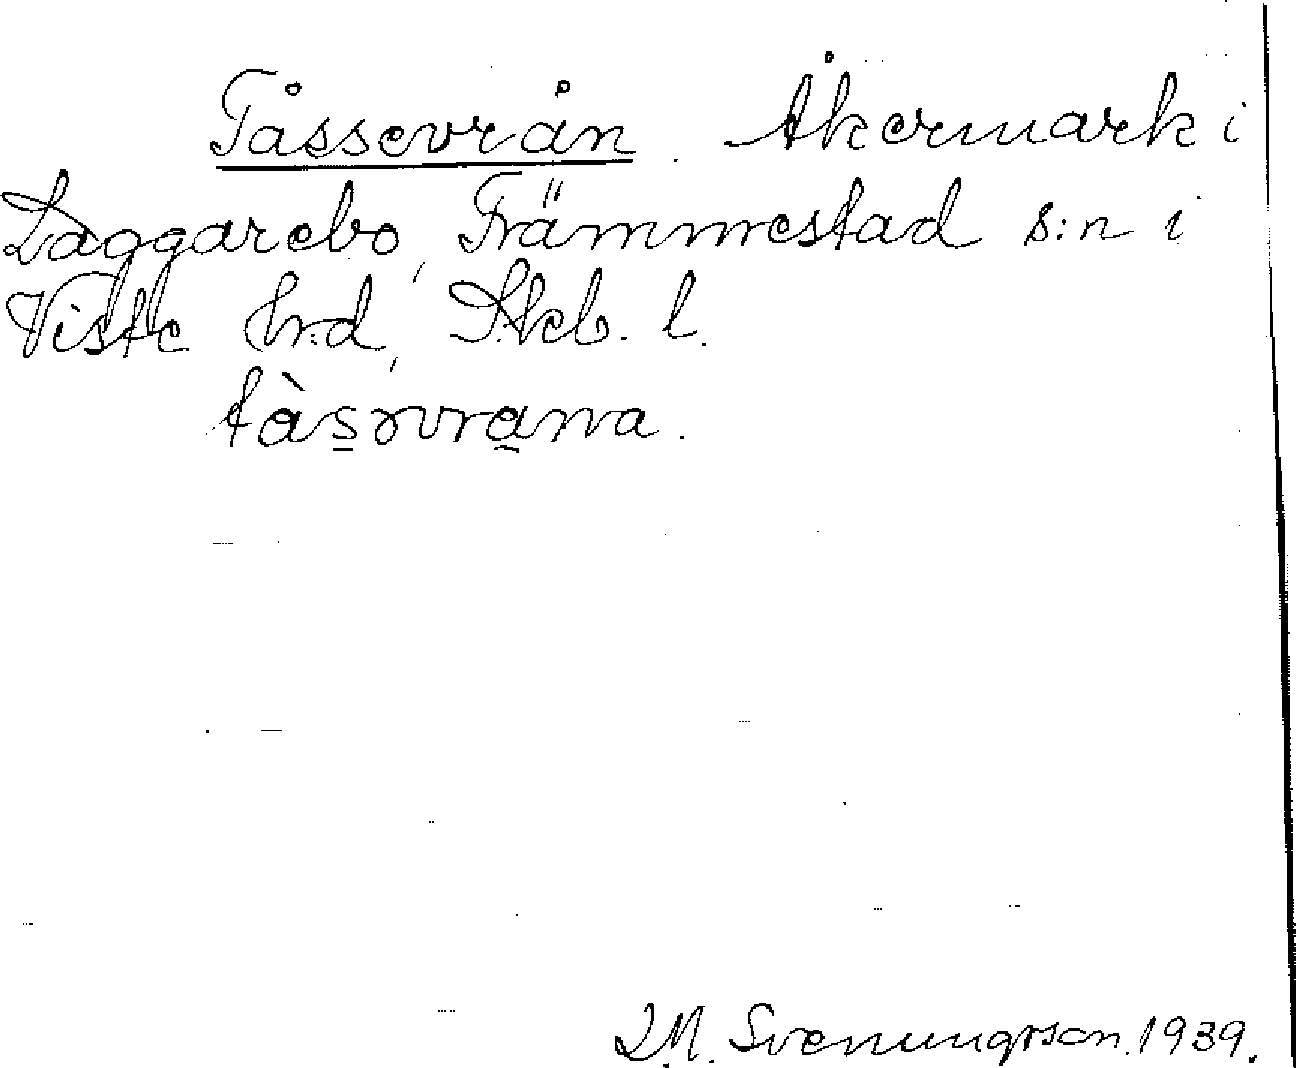 Tåssevrån. Åkermark i
Laggarebo, Främmestad s:n i
Viste hrd, Skb. l.
tàs̲ovra̲nna.
D.M. Svenungsson. 1939.